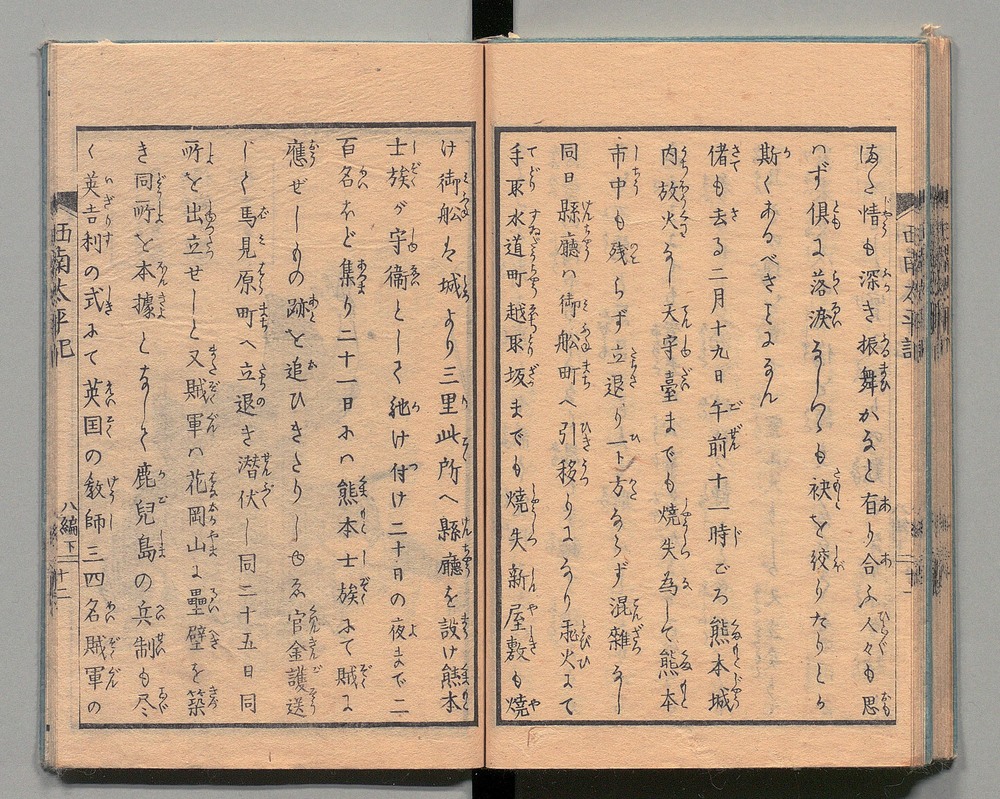 情も深き振舞かなと有り合ふ人々も思
はず俱に落淚なしつゝも袂を絞りたりとか
斯くあるべきことになん
偖も去る二月十九日午前十一時ごろ熊本城
内放火なし天守臺までも焼失為して熊本
市中も残らず立退り一ト方ならず混雑なし
同日縣廳ハ御舩町へ引移りになり飛火にて
手取水道町越取坂までも焼失新屋敷も焼
け御舩は城より三里此所へ縣廳を設け熊本
士族が守衞として紲け付け二十日の夜まで二
百名ほど集り二十一日にハ熊本士族にて賊に
應ぜしもの跡を追ひきたりしゆゑ官金護送
じく馬見原町へ立退き潜伏し同二十五日同
所を出立せしと又賊軍ハ花岡山に壘壁を築
き同所を本據となして鹿兒島の兵制も尽
く英吉利の式にて英国の敎師三四名賊軍の
西南太平記
八編下
十二